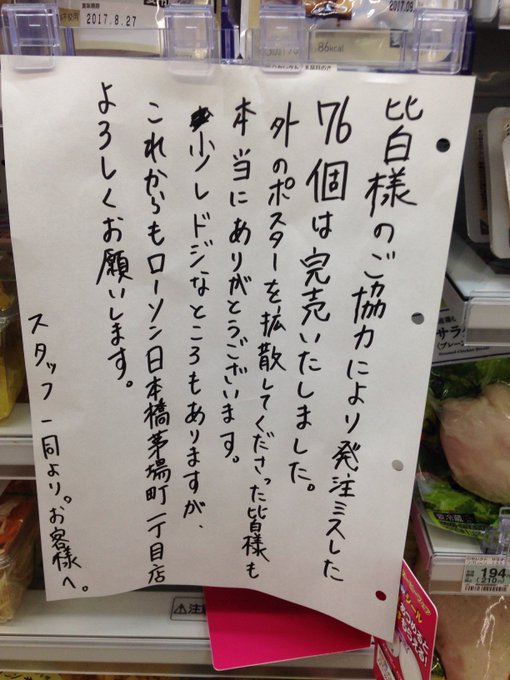 2017.8.27
2017.09
86kcal
皆様のご協力により発注ミスした
76個は完売いたしました。
外のポスターを拡散してくださった皆様も
本当にありがとうございます。
少しドジなところもありますが、
これからもローソン日本橋茅場町一丁目店
よろしくお願いします。
スタッフ一同より。お客様へ。
サラ
194
注
シール